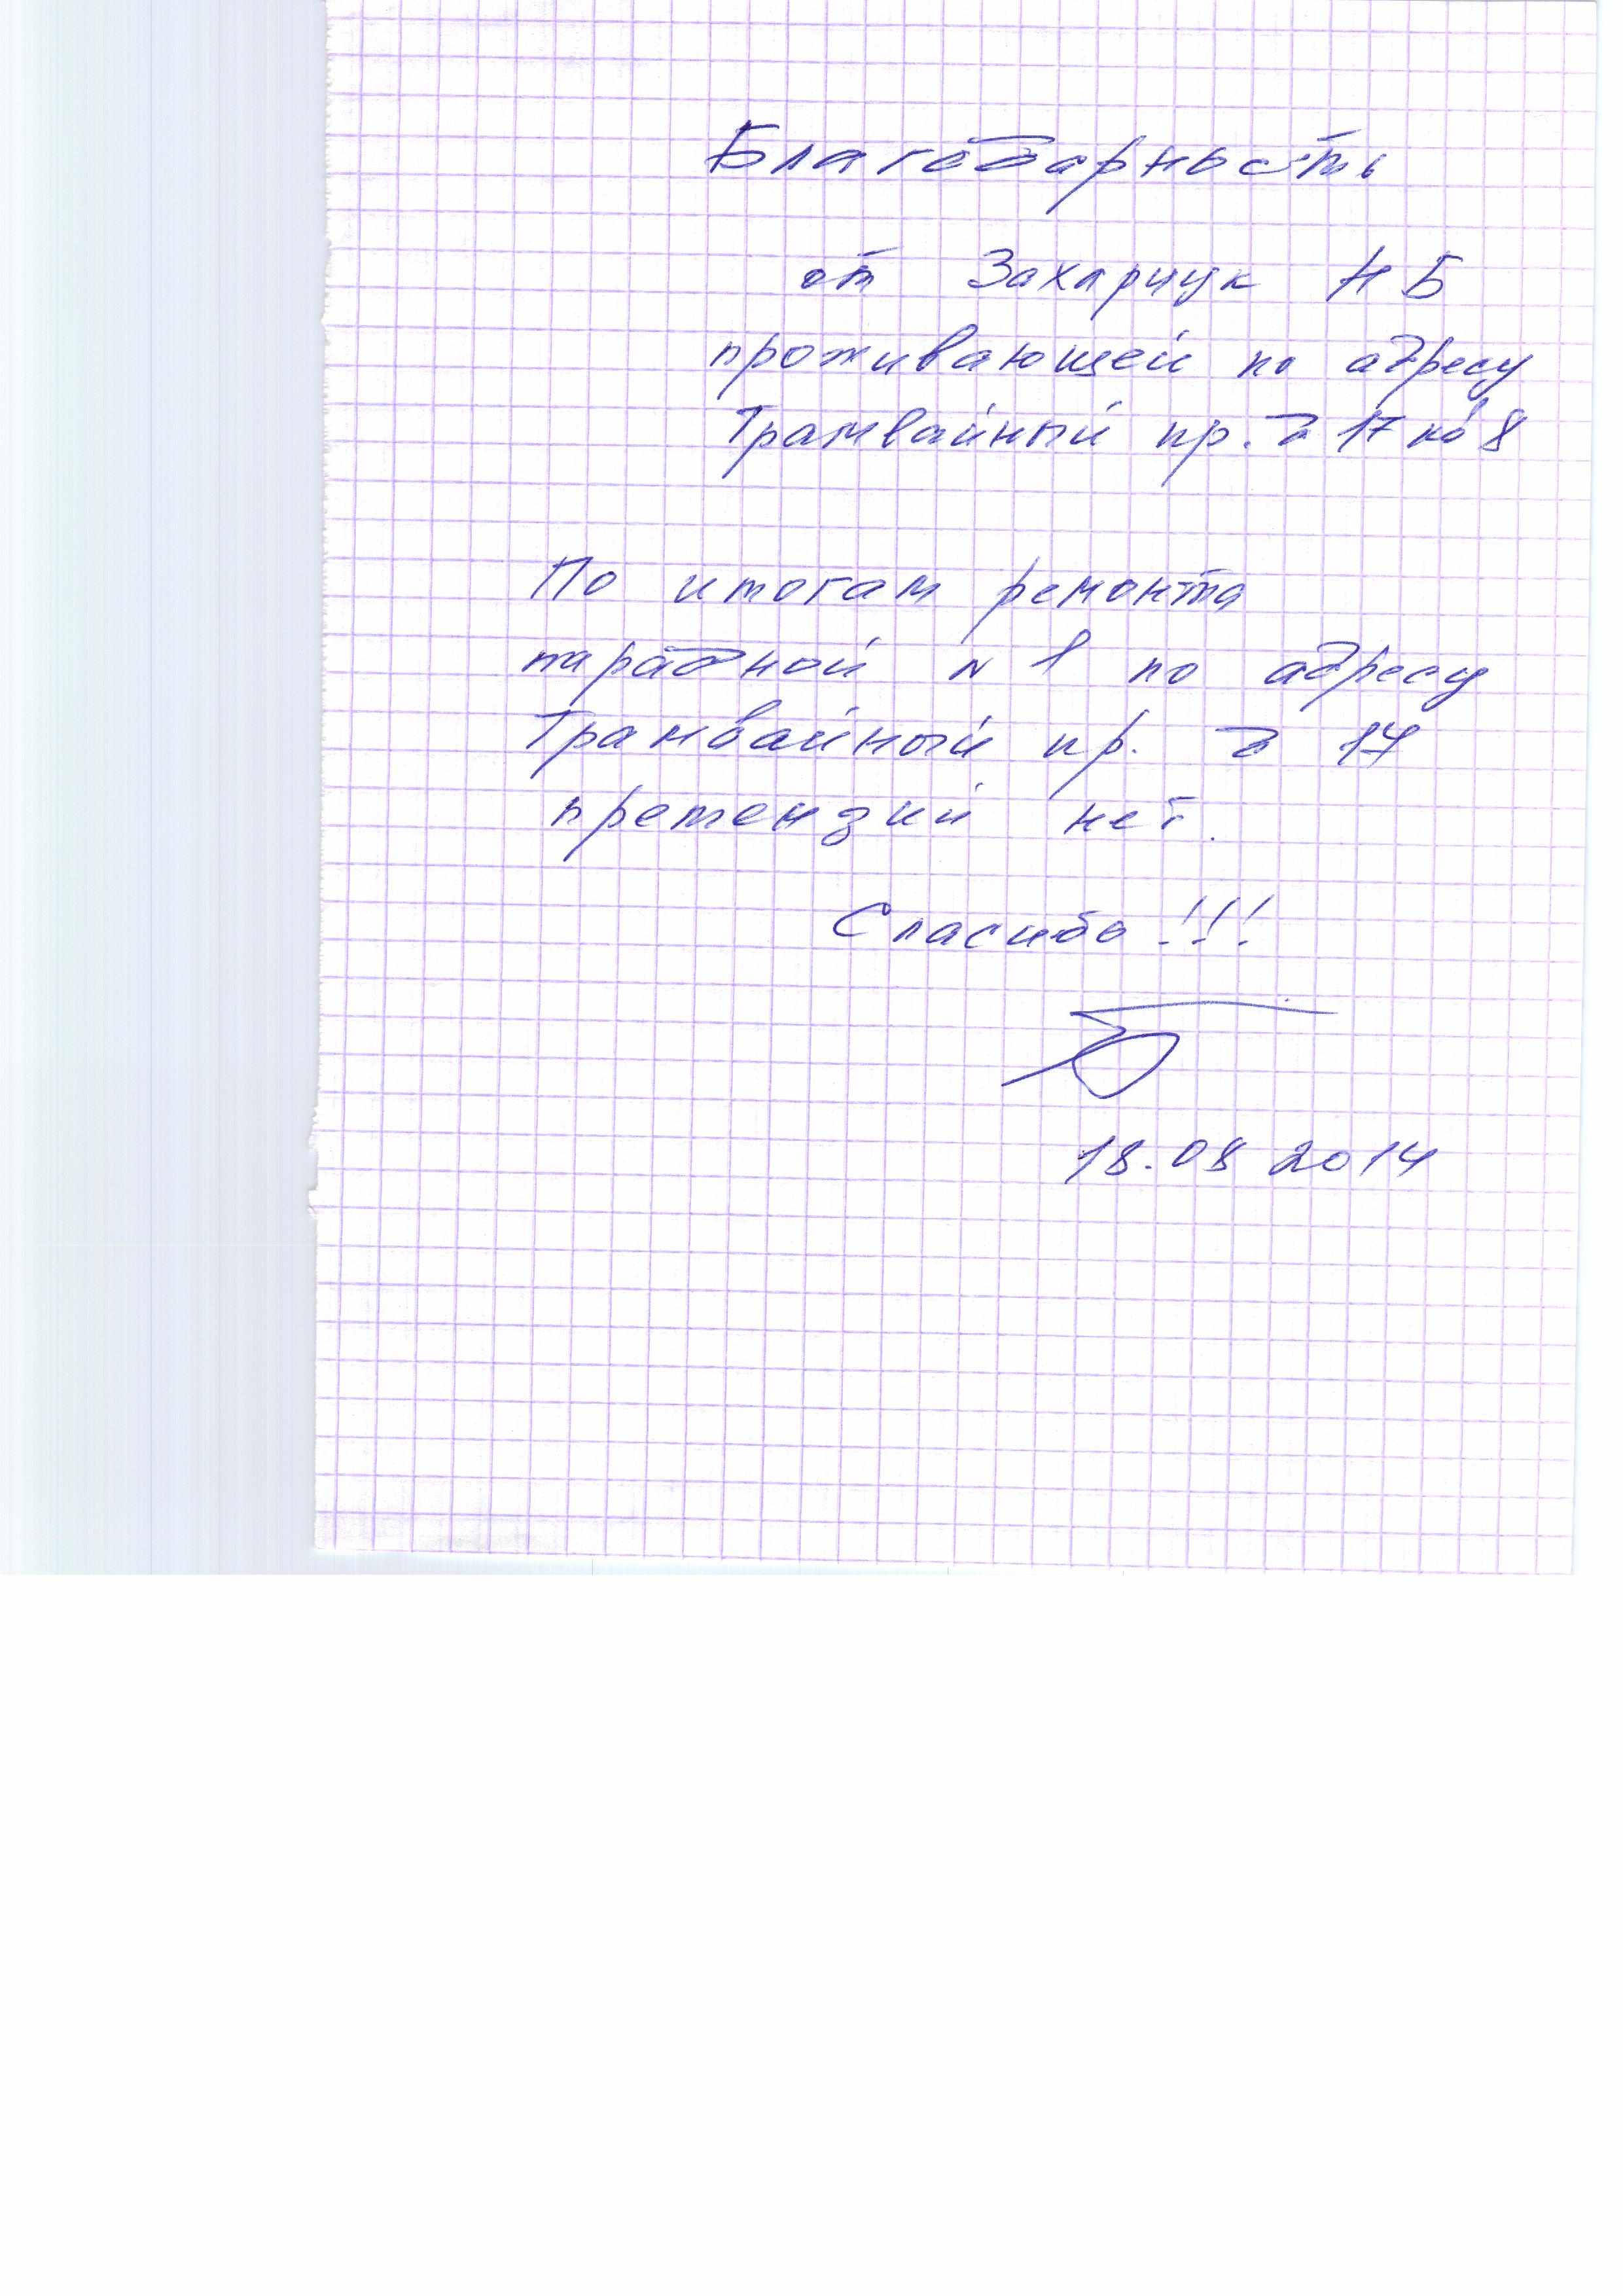 Благодарность
от Захарчук Н Б
проживающей по адресу
Трамвайный пр. д 17 кв 8
По итогам ремонта
парадной N 1 по адресу
Трамвайный пр. д 17
претензий нет.
Спасибо !!!
18.08 2014